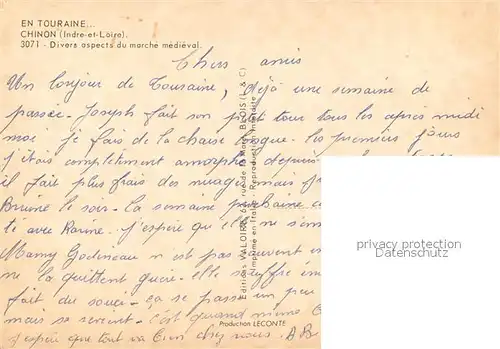 EN TOURAINE...
CHINON (Indre-et-Loire).
3071 - Divers aspects du marché médiéval.
Chers amis
Un bonjour de Touraine, déjà une semaine de
passée. Joseph fait son petit tour tous les après midi
moi je fais de la chaise longue. les premiers jours
j'étais complètement amorphe depuis
il fait plus frais des nuages mais
Bruine le soir. la semaine prochaine
té avec Karine. j'espère qu'elle ne
Mamy Godineau n'est pas souvent
ne la quittent guère. elle souffre
fait du souci. ça se passe un peu
mais se servent. c'est quand même
j'espère que tout va bien chez vous. AB
Editions VALOIRE, rue de la BLOIS (L & C)
Imprimé en Italie - Reproduction interdite
Production LECONTE
privacy protection
Datenschutz